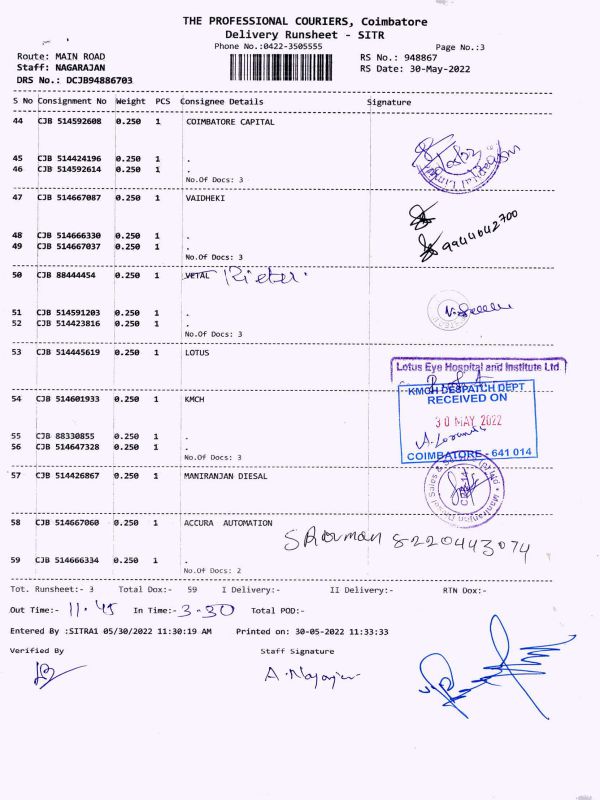 THE PROFESSIONAL COURIERS, Coimbatore
Delivery Runsheet - SITR
Phone No.:0422-3505555 Page No.:3
Route: MAIN ROAD RS No.: 948867
Staff: NAGARAJAN RS Date: 30-May-2022
DRS No.: DCJB94886703
S No Consignment No Weight PCS Consignee Details Signature
44 CJB 514592608 0.250 1 COIMBATORE CAPITAL
45 CJB 514424196 0.250 1 .
46 CJB 514592614 0.250 1 .
No.Of Docs: 3
47 CJB 514667087 0.250 1 VAIDHEKI
48 CJB 514666330 0.250 1 .
49 CJB 514667037 0.250 1 .
9944642700
No.Of Docs: 3
50 CJB 88444454 0.250 1 VETAL Rieter.
51 CJB 514591203 0.250 1 .
52 CJB 514423816 0.250 1 .
No.Of Docs: 3
53 CJB 514445619 0.250 1 LOTUS
Lotus Eye Hospital and Institute Ltd
54 CJB 514601933 0.250 1 KMCH
KMCH DESPATCH DEPT
RECEIVED ON
30 MAY 2022
COIMBATORE - 641 014
55 CJB 88330855 0.250 1 .
56 CJB 514647328 0.250 1 .
No.Of Docs: 3
57 CJB 514426867 0.250 1 MANIRANJAN DIESAL
58 CJB 514667060 0.250 1 ACCURA AUTOMATION
8220443074
59 CJB 514666334 0.250 1 .
No.Of Docs: 2
Tot. Runsheet:- 3 Total Dox:- 59 I Delivery:- II Delivery:- RTN Dox:-
Out Time:- 11.45 In Time:- 3-30 Total POD:-
Entered By :SITRA1 05/30/2022 11:30:19 AM Printed on: 30-05-2022 11:33:33
Verified By Staff Signature